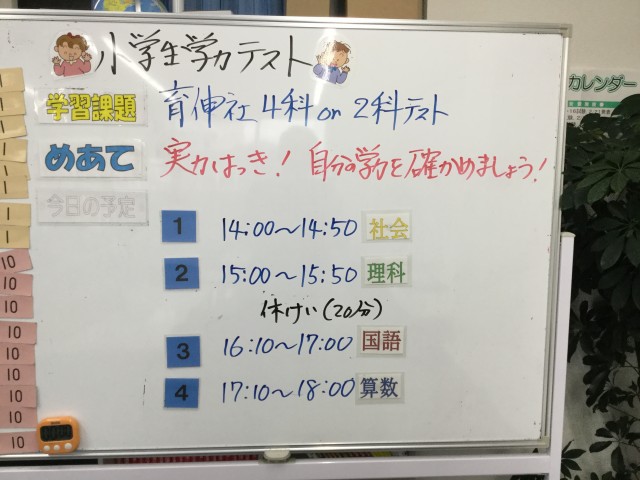 小学生学力テスト
学習課題 育伸社 4科 or 2科テスト
めあて 実力はっき! 自分の学力を確かめましょう!
今日の予定
1 14:00～14:50 社会
2 15:00～15:50 理科
休けい(20分)
3 16:10～17:00 国語
4 17:10～18:00 算数
カレンダー
1
1
1
1
1
1
1
10
10
10
10
10
10
10
10